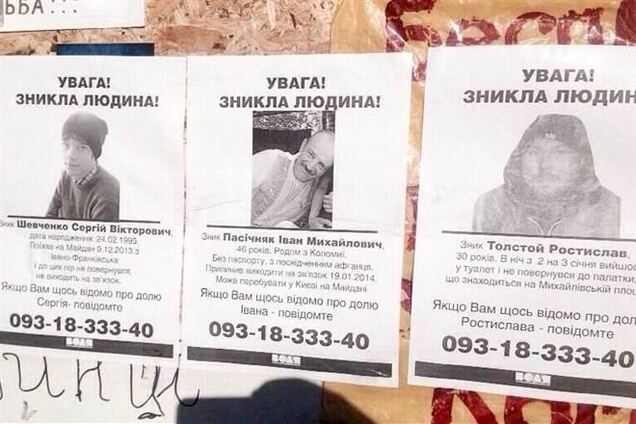 ЬБА...
Беса
УВАГА!
ЗНИКЛА ЛЮДИНА!
Зник Шевченко Сергій Вікторович,
дата народження: 24.02.1995.
Поїхав на Майдан 9.12.2013 з
Івано-Франківська
і до цих пір не повернувся,
не виходить на зв'язок.
Якщо Вам щось відомо про долю
Сергія- повідомте
093-18-333-40
ВОЛЯ
УВАГА!
ЗНИКЛА ЛЮДИНА!
Зник Пасічняк Іван Михайлович,
46 років. Родом з Коломиї.
Без паспорту, з посвідченням афганця.
Припинив виходити на зв'язок 19.01.2014.
Може перебувати у Києві на Майдані
Якщо Вам щось відомо про долю
Івана - повідомте
093-18-333-40
ВОЛЯ
УВАГА!
ЗНИКЛА ЛЮДИН
Зник Толстой Ростислав,
30 років. В ніч з 2 на 3 січня вийшо
у туалет і не повернувся до палатки,
що знаходиться на Михайлівській площ
Якщо Вам щось відомо про долю
Ростислава - повідомте
093-18-333-40
ВОЛЯ